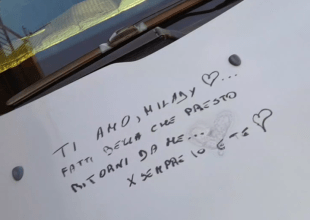 TI AMO, MILADY ♡...
FATTI BELLA CHE PRESTO
RITORNI DA ME...
X SEMPRE IO E TE ♡